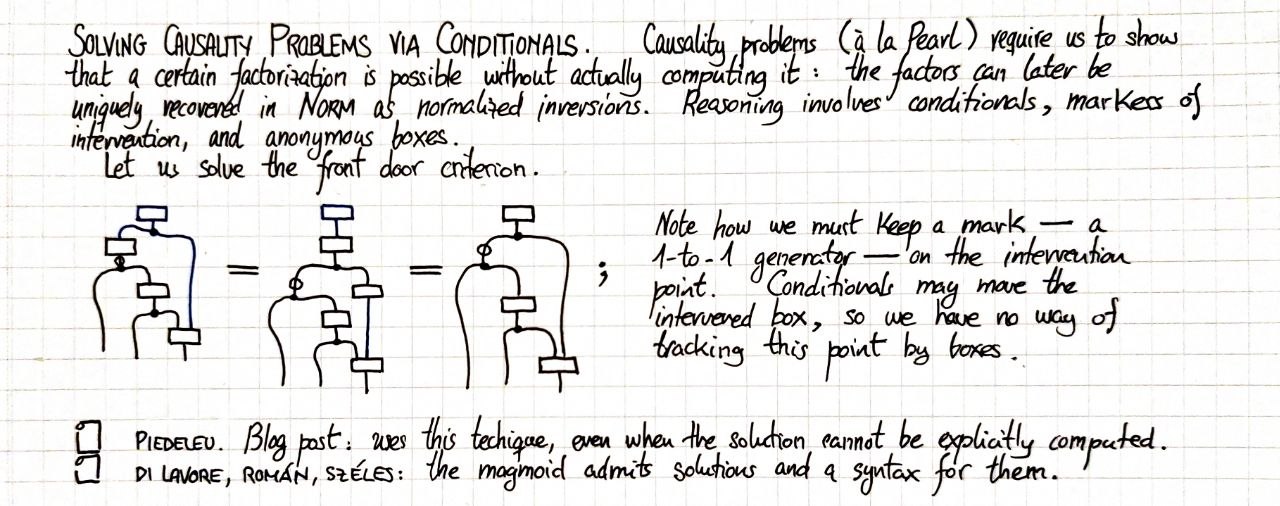 SOLVING CAUSALITY PROBLEMS VIA CONDITIONALS. Causality problems (à la Pearl) require us to show
that a certain factorization is possible without actually computing it: the factors can later be
uniquely recovered in NORM as normalized inversions. Reasoning involves conditionals, markers of
intervention, and anonymous boxes.
Let us solve the front door criterion.
= = ;
Note how we must keep a mark — a
1-to-1 generator — on the intervention
point. Conditionals may move the
intervened box, so we have no way of
tracking this point by boxes.
PIEDELEU. Blog post: uses this techique, even when the solution cannot be explicitly computed.
DI LAVORE, ROMÁN, SZÉLES: the magmoid admits solutions and a syntax for them.